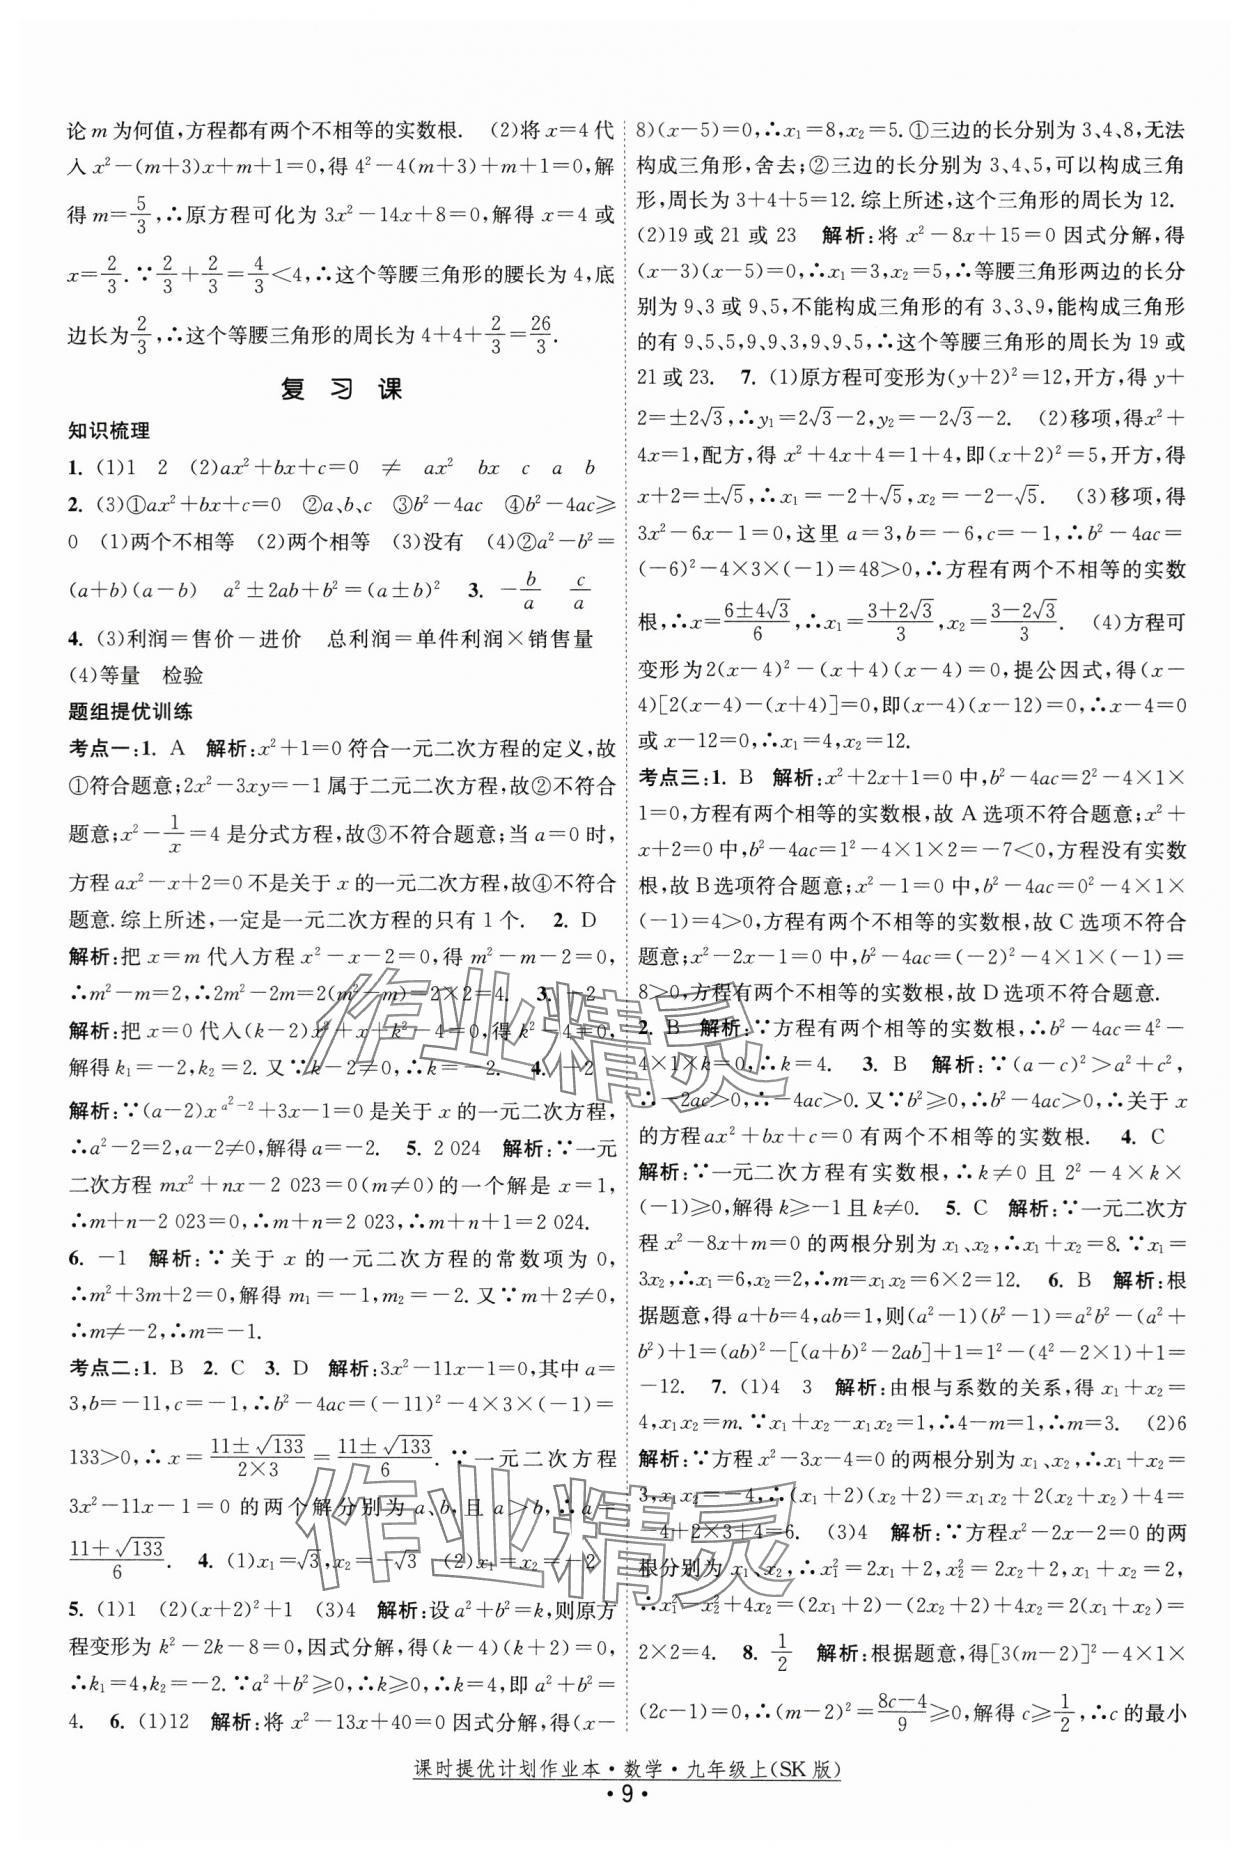 论 m 为何值,方程都有两个不相等的实数根. (2)将 x=4 代
入 x²-(m+3)x+m+1=0,得 4²-4(m+3)+m+1=0,解
得 m=5/3,∴原方程可化为 3x²-14x+8=0,解得 x=4 或
x=2/3.∵2/3+2/3=4/3<4,∴这个等腰三角形的腰长为 4,底
边长为2/3,∴这个等腰三角形的周长为 4+4+2/3=26/3.
复 习 课
知识梳理
1. (1)1 2 (2)ax²+bx+c=0 ≠ ax² bx c a b
2. (3)①ax²+bx+c=0 ②a、b、c ③b²-4ac ④b²-4ac≥
0 (1)两个不相等 (2)两个相等 (3)没有 (4)②a²-b²=
(a+b)(a-b) a²±2ab+b²=(a±b)² 3. -b/a c/a
4. (3)利润=售价-进价 总利润=单件利润×销售量
(4)等量 检验
题组提优训练
考点一:1. A 解析:x²+1=0 符合一元二次方程的定义,故
①符合题意;2x²-3xy=-1 属于二元二次方程,故②不符合
题意;x²-1/x=4 是分式方程,故③不符合题意;当 a=0 时,
方程 ax²-x+2=0 不是关于 x 的一元二次方程,故④不符合
题意.综上所述,一定是一元二次方程的只有 1 个. 2. D
解析:把 x=m 代入方程 x²-x-2=0,得 m²-m-2=0,
∴m²-m=2,∴2m²-2m=2(m²-m)=2×2=4. 3. -2
解析:把 x=0 代入(k-2)x²+x+k²-4=0,得 k²-4=0,
解得 k₁=-2,k₂=2. 又∵k-2≠0,∴k=-2. 4. -2
解析:∵(a-2)x^(a²-2)+3x-1=0 是关于 x 的一元二次方程,
∴a²-2=2,a-2≠0,解得 a=-2. 5. 2 024 解析:∵一元
二次方程 mx²+nx-2 023=0(m≠0)的一个解是 x=1,
∴m+n-2 023=0,∴m+n=2 023,∴m+n+1=2 024.
6. -1 解析:∵关于 x 的一元二次方程的常数项为 0,
∴m²+3m+2=0,解得 m₁=-1,m₂=-2. 又∵m+2≠0,
∴m≠-2,∴m=-1.
考点二:1. B 2. C 3. D 解析:3x²-11x-1=0,其中 a=
3,b=-11,c=-1,∴b²-4ac=(-11)²-4×3×(-1)=
133>0,∴x=(11±√133)/(2×3)=(11±√133)/6.∵一元二次方程
3x²-11x-1=0 的两个解分别为 a、b,且 a>b,∴a=
(11+√133)/6. 4. (1)x₁=√3,x₂=-√3 (2)x₁=x₂=-2
5. (1)1 (2)(x+2)²+1 (3)4 解析:设 a²+b²=k,则原方
程变形为 k²-2k-8=0,因式分解,得(k-4)(k+2)=0,
∴k₁=4,k₂=-2.∵a²+b²≥0,∴k≥0,∴k=4,即 a²+b²=
4. 6. (1)12 解析:将 x²-13x+40=0 因式分解,得(x-
8)(x-5)=0,∴x₁=8,x₂=5.①三边的长分别为 3、4、8,无法
构成三角形,舍去;②三边的长分别为 3、4、5,可以构成三角
形,周长为 3+4+5=12.综上所述,这个三角形的周长为 12.
(2)19 或 21 或 23 解析:将 x²-8x+15=0 因式分解,得
(x-3)(x-5)=0,∴x₁=3,x₂=5,∴等腰三角形两边的长分
别为 9、3 或 9、5,不能构成三角形的有 3、3、9,能构成三角形
的有 9、5、5,9、9、3,9、9、5,∴这个等腰三角形的周长为 19 或
21 或 23. 7. (1)原方程可变形为(y+2)²=12,开方,得 y+
2=±2√3,∴y₁=2√3-2,y₂=-2√3-2. (2)移项,得x²+
4x=1,配方,得 x²+4x+4=1+4,即(x+2)²=5,开方,得
x+2=±√5,∴x₁=-2+√5,x₂=-2-√5. (3)移项,得
3x²-6x-1=0,这里 a=3,b=-6,c=-1,∴b²-4ac=
(-6)²-4×3×(-1)=48>0,∴方程有两个不相等的实数
根,∴x=(6±4√3)/6,∴x₁=(3+2√3)/3,x₂=(3-2√3)/3. (4)方程可
变形为 2(x-4)²-(x+4)(x-4)=0,提公因式,得(x-
4)[2(x-4)-(x+4)]=0,即(x-4)(x-12)=0,∴x-4=0
或 x-12=0,∴x₁=4,x₂=12.
考点三:1. B 解析:x²+2x+1=0 中,b²-4ac=2²-4×1×
1=0,方程有两个相等的实数根,故 A 选项不符合题意;x²+
x+2=0 中,b²-4ac=1²-4×1×2=-7<0,方程没有实数
根,故 B选项符合题意;x²-1=0 中,b²-4ac=0²-4×1×
(-1)=4>0,方程有两个不相等的实数根,故 C 选项不符合
题意;x²-2x-1=0 中,b²-4ac=(-2)²-4×1×(-1)=
8>0,方程有两个不相等的实数根,故 D 选项不符合题意.
2. B 解析:∵方程有两个相等的实数根,∴b²-4ac=4²-
4×1×k=0,∴k=4. 3. B 解析:∵(a-c)²>a²+c²,
∴-2ac>0,∴-4ac>0. 又∵b²≥0,∴b²-4ac>0,∴关于 x
的方程 ax²+bx+c=0 有两个不相等的实数根. 4. C
解析:∵一元二次方程有实数根,∴k≠0 且 2²-4×k×
(-1)≥0,解得 k≥-1 且 k≠0. 5. C 解析:∵一元二次方
程 x²-8x+m=0 的两根分别为 x₁、x₂,∴x₁+x₂=8.∵x₁=
3x₂,∴x₁=6,x₂=2,∴m=x₁x₂=6×2=12. 6. B 解析:根
据题意,得 a+b=4,ab=1,则(a²-1)(b²-1)=a²b²-(a²+
b²)+1=(ab)²-[(a+b)²-2ab]+1=1²-(4²-2×1)+1=
-12. 7. (1)4 3 解析:由根与系数的关系,得 x₁+x₂=
4,x₁x₂=m.∵x₁+x₂-x₁x₂=1,∴4-m=1,∴m=3. (2)6
解析:∵方程 x²-3x-4=0 的两根分别为 x₁、x₂,∴x₁+x₂=
3,x₁x₂=-4,∴(x₁+2)(x₂+2)=x₁x₂+2(x₂+x₂)+4=
-4+2×3+4=6. (3)4 解析:∵方程x²-2x-2=0 的两
根分别为 x₁、x₂,∴x₁²=2x₁+2,x₂²=2x₂+2,x₁+x₂=2,
∴x₁²-x₂²+4x₂=(2x₁+2)-(2x₂+2)+4x₂=2(x₁+x₂)=
2×2=4. 8. 1/2 解析:根据题意,得[3(m-2)]²-4×1×
(2c-1)=0,∴(m-2)²=(8c-4)/9≥0,解得 c≥1/2,∴c 的最小
课时提优计划作业本·数学·九年级上(SK 版)
·9·
作业精灵
作业精灵